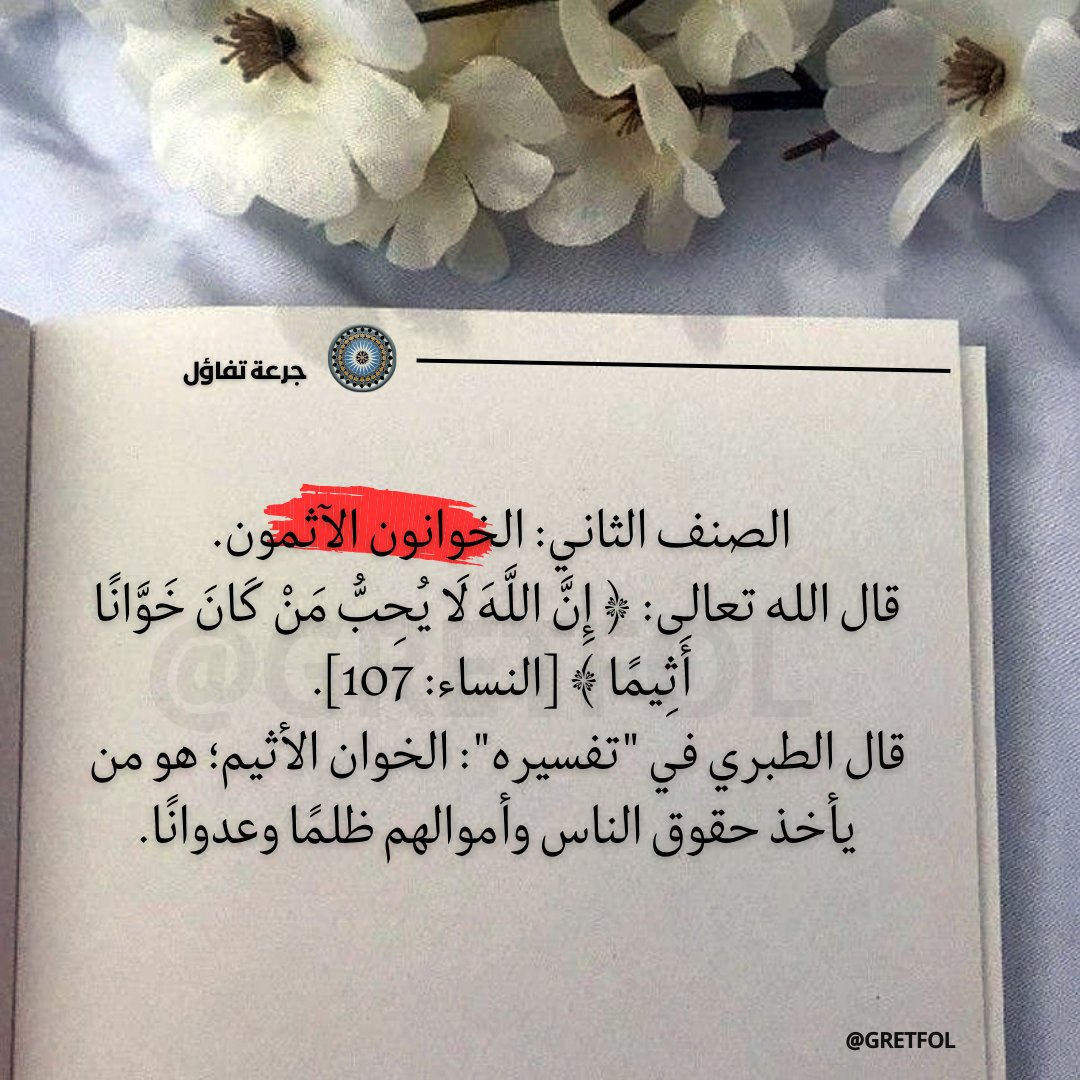 جرعة تفاؤل
الصنف الثاني: الخوانون الآثمون.
قال الله تعالى: ﴿ إِنَّ اللَّهَ لَا يُحِبُّ مَنْ كَانَ خَوَّانًا
أَثِيمًا ﴾ [النساء: 107].
قال الطبري في "تفسيره": الخوان الأثيم؛ هو من
يأخذ حقوق الناس وأموالهم ظلمًا وعدوانًا.
@GRETFOL
@GRETFOL